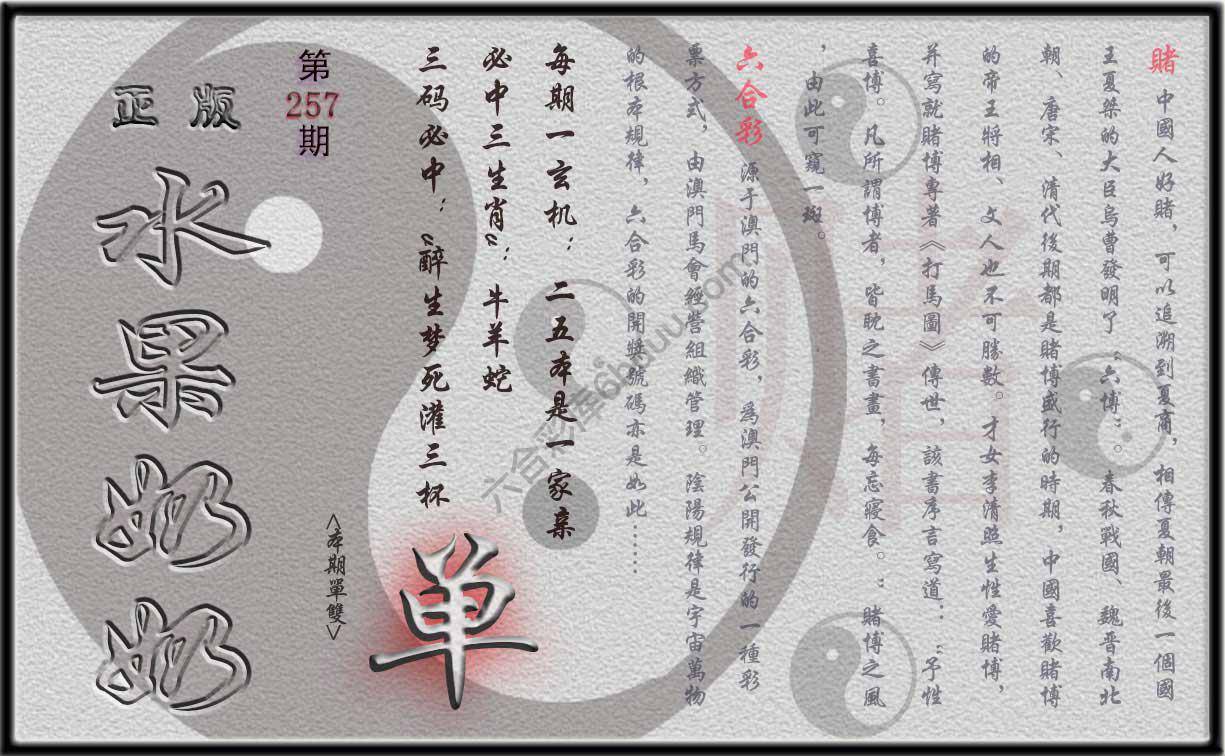 賭 中國人好賭，可以追溯到夏商，相傳夏朝最後一個國
王夏桀的大臣烏曹發明了“六博”。春秋戰國、魏晋南北
朝、唐宋、清代後期都是賭博盛行的時期，中國喜歡賭博
的帝王將相、文人也不可勝數。才女李清照生性愛賭博，
并寫就賭博專著《打馬圖》傳世，該書序言寫道：“予性
喜博。凡所謂博者，皆耽之書畫，每忘寢食。：賭博之風
，由此可窺一斑。
六合彩 源于澳門的六合彩，爲澳門公開發行的一種彩
票方式，由澳門馬會經營組織管理。陰陽規律是宇宙萬物
的根本規律，六合彩的開獎號碼亦是如此……
每期一玄机：二五本是一家亲
必中三生肖〞：牛羊蛇
三码必中：〝醉生梦死灌三杯
单
<本期單雙>
第257期
正版
水果奶奶
賭
六合彩库6hduu.com